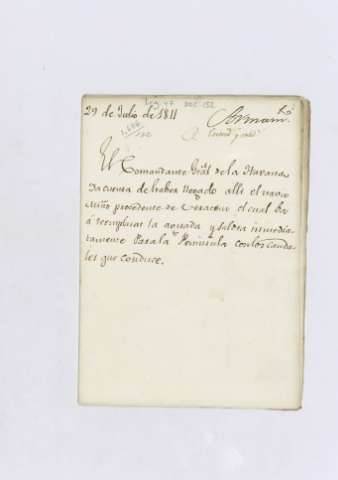 Leg 47 doc 152
29 de Julio de 1811
El Comandante Gral de la Havana
Da cuenta de haber llegado alli el navio
Miño procedente de Veracruz el cual ba
á reemplazar la aguada y saldra inmedia-
tamente Para la Peninsula con los cauda-
les que conduce.